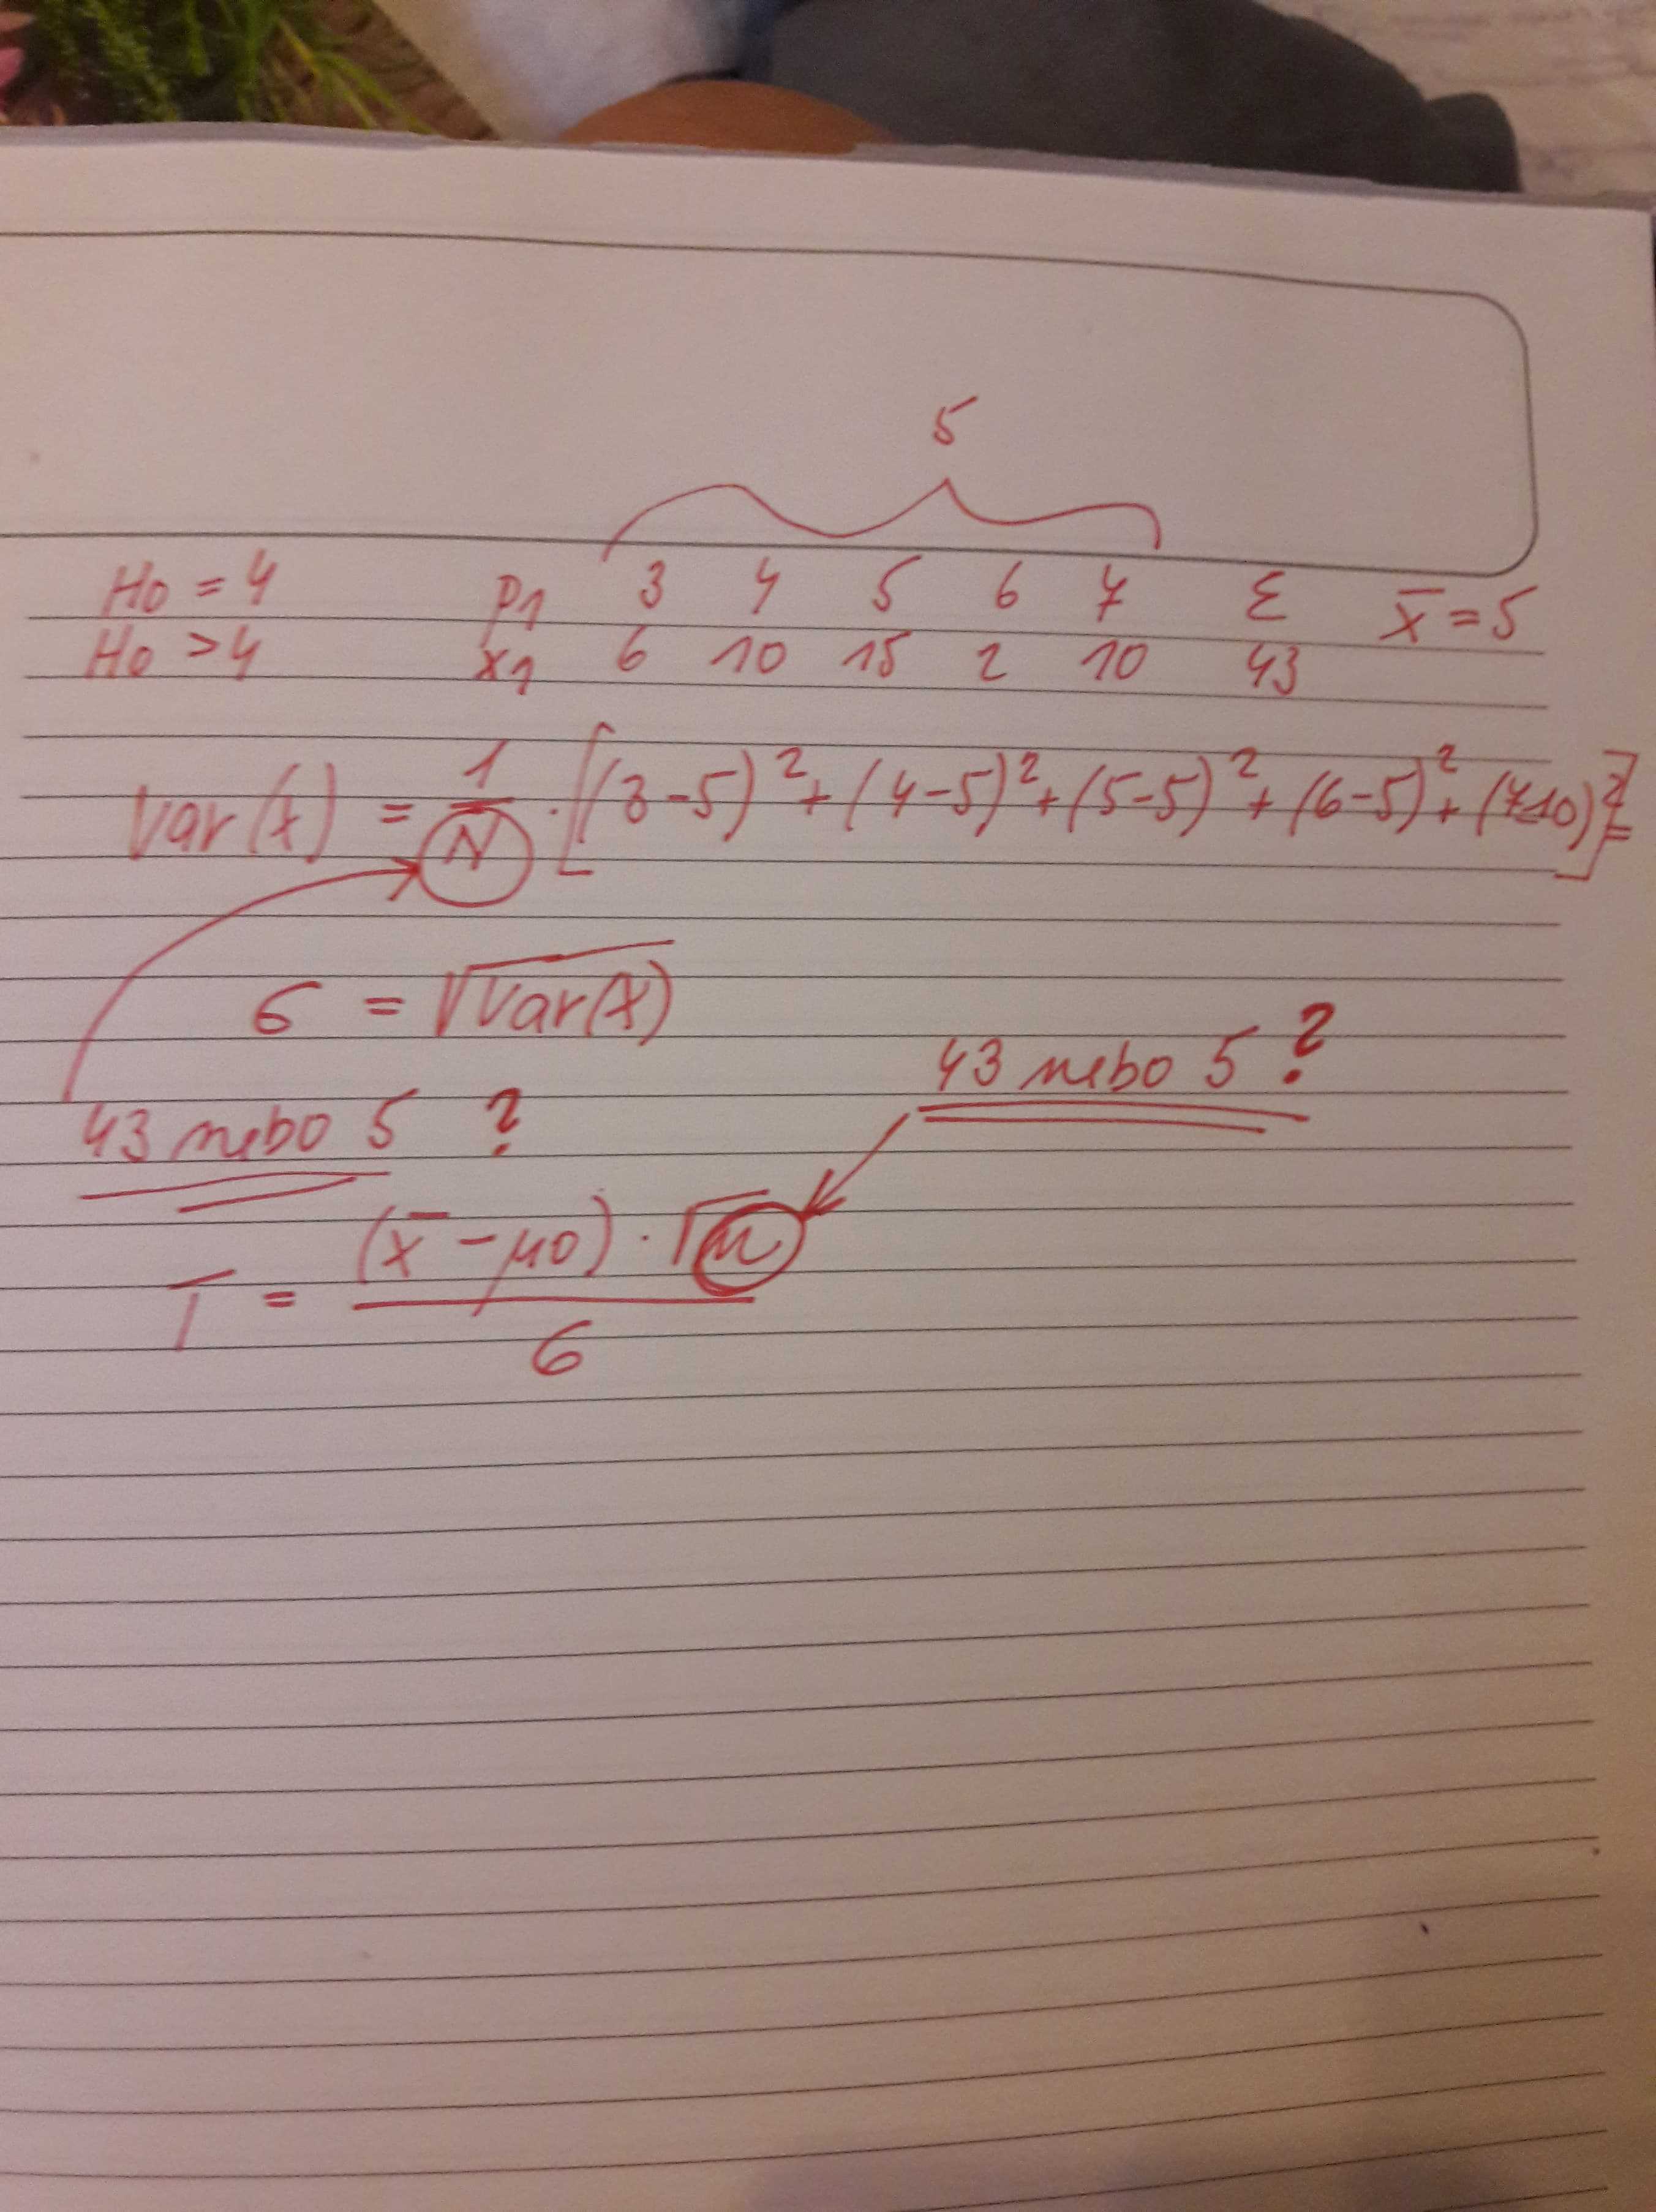 5
H0 = 4 P1 3 4 5 6 7 Σ x̄ = 5
H0 > 4 x1 6 10 15 2 10 43
Var(x) = 1/N · [(3-5)² + (4-5)² + (5-5)² + (6-5)² + (7-10)²] =
6 = √Var(x)
43 nebo 5 ?
43 nebo 5 ?
T = (x̄ - μ0) · √n / 6